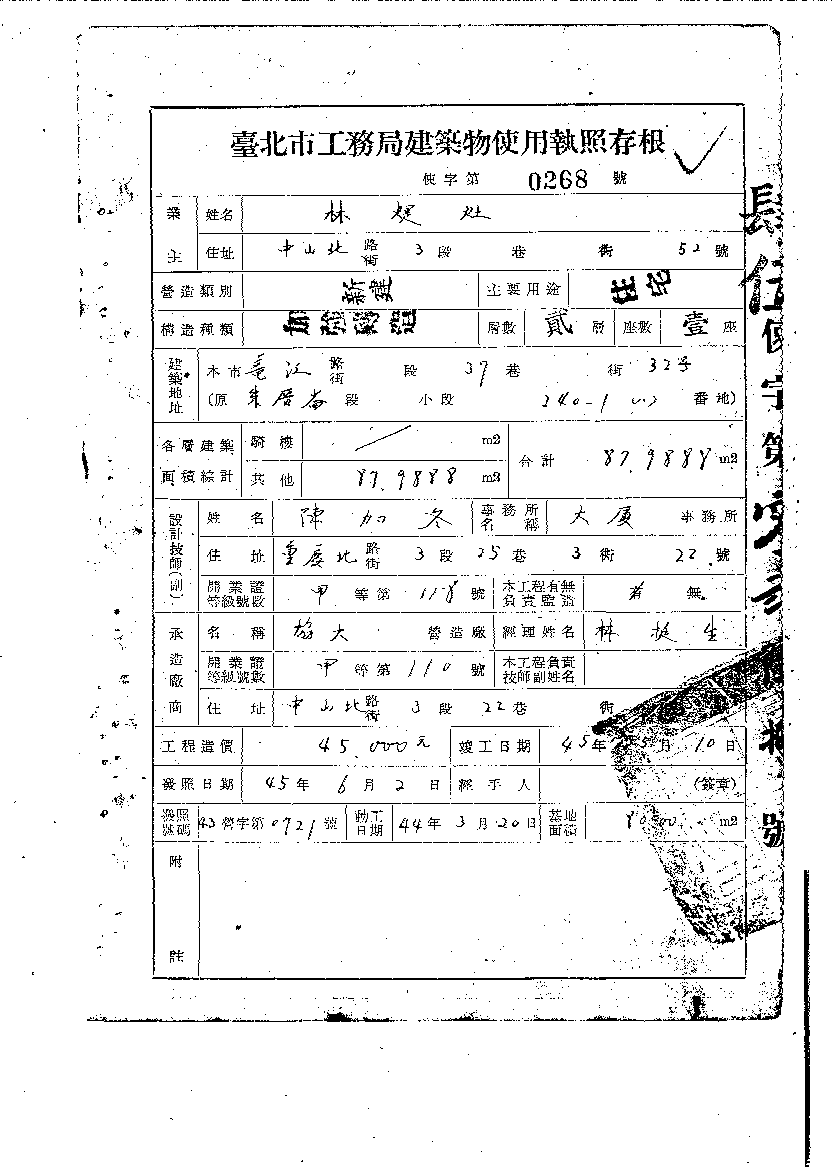 臺北市工務局建築物使用執照存根
使字第 0268 號
業主 姓名 林
住址 中山北路街 3段 巷 街 52號
營造類別 新建 主要用途 住宅
構造種類 加強磚造 層數 貳 層 座數 壹 座
建築地址 本市 龍江 路街 段 37巷 街 32号
(原 朱厝崙 段 小段 240-1 番地)
各層建築面積綜計 騎樓 m2 合計 87.9888 m2
其他 87.9888 m2
設計技師(副) 姓名 陳加冬 事務所名稱 大廈 事務所
住址 重慶北路街 3段 25巷 3街 22號
開業證等級號數 甲等第 118號 本工程有無負責監造 有 無
承造廠商 名稱 大 營造廠 經理姓名 林挺生
開業證等級號數 甲等第 110號 本工程負責技師副姓名
住址 中山北路街 3段 22巷 街 號
工程造價 45,000元 竣工日期 45年 月10日
發照日期 45年6月2日 經手人 (簽章)
發照號碼 43營字第0721號 動工日期 44年3月20日 基地面積 m2
附註
使字第
號